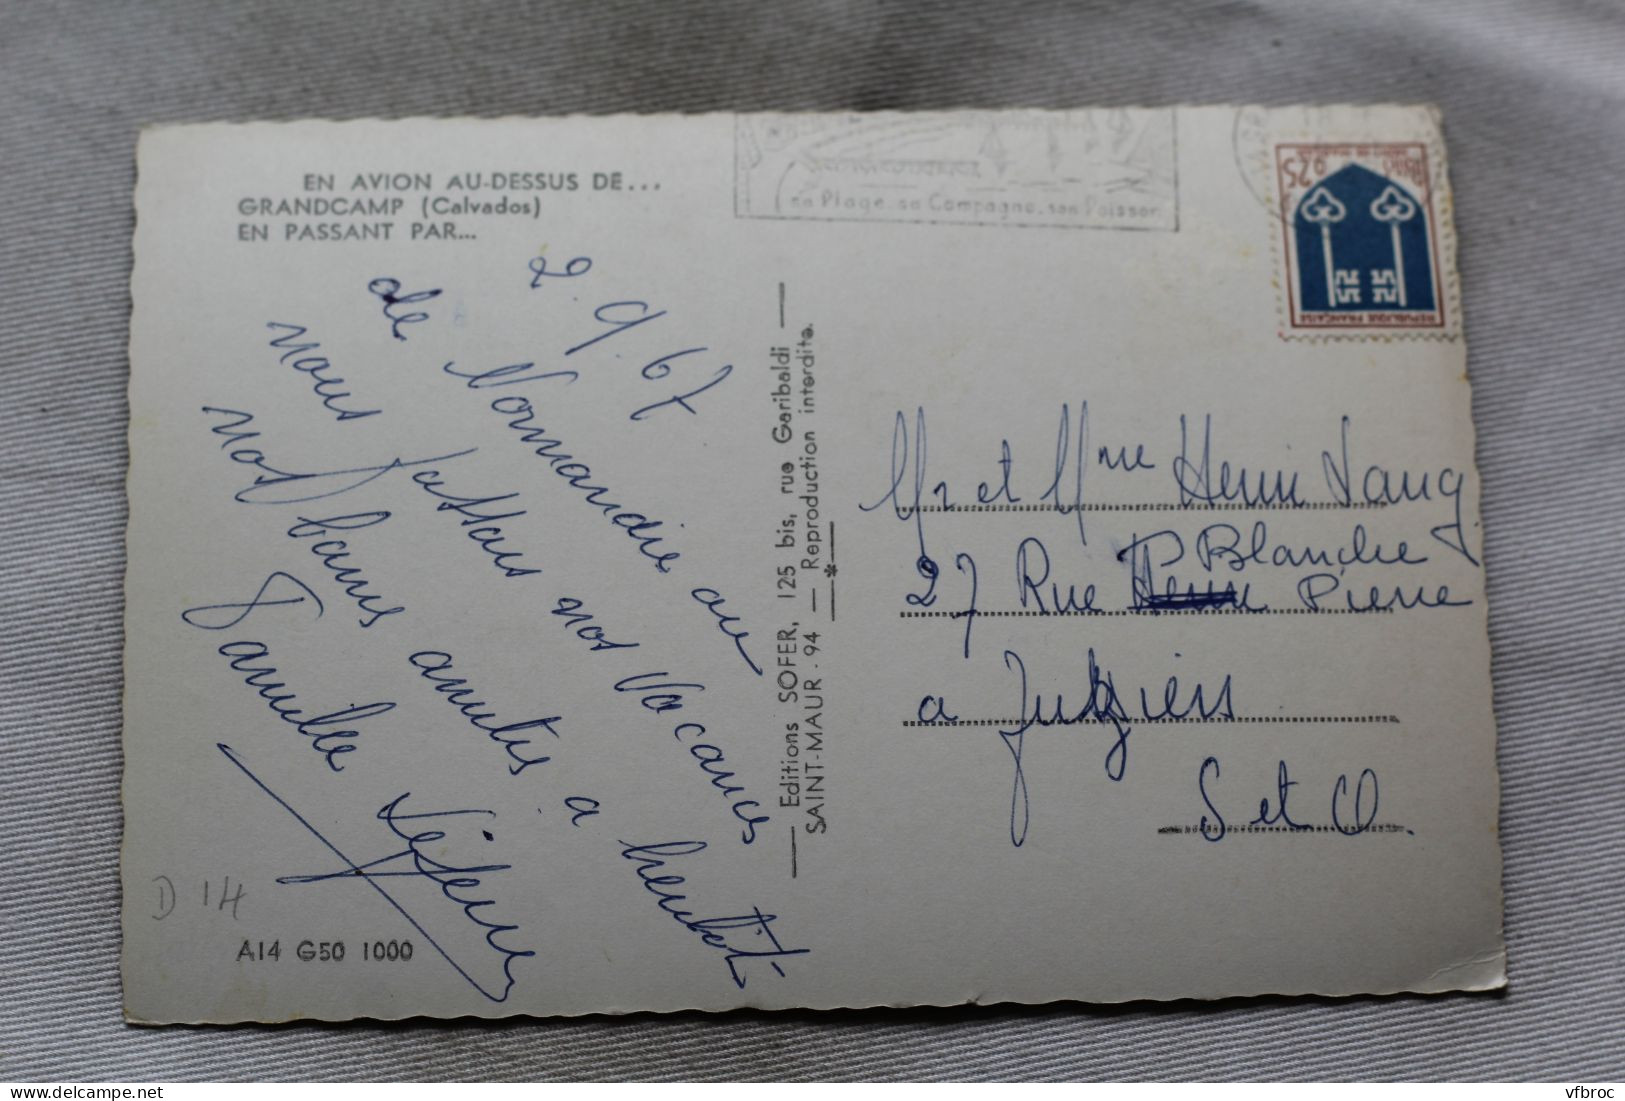 EN AVION AU-DESSUS DE...
GRANDCAMP (Calvados)
EN PASSANT PAR...
sa Plage, sa Campagne, son Poisson
0,25
REPUBLIQUE FRANÇAISE
2.9.67
de Normandie ou
nous passons nos vacances
nos bonnes amitiés a
Famille Lejeune
Editions SOFER, 125 bis, rue Garibaldi
SAINT-MAUR - 94 — Reproduction interdite.
Mr et Mme Henri
Blanche
27 Rue Pierre
a Juziers
S et O.
D 14
A14 G50 1000
vfbroc